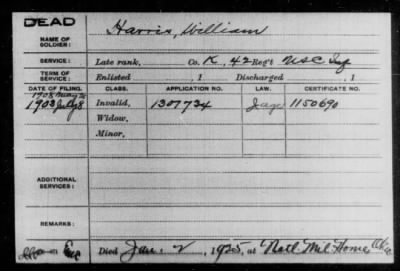 DEAD
NAME OF SOLDIER: Harris, William
SERVICE: Late rank, Co. K, 42 Reg't USC Inf
TERM OF SERVICE: Enlisted , 1 Discharged , 1
DATE OF FILING. CLASS. APPLICATION NO. LAW. CERTIFICATE NO.
1908 May
1908 July 8 Invalid, 1307734 1150690
Widow,
Minor,
ADDITIONAL SERVICES:
REMARKS:
Died Jan. 2, 1925, at Natl Mil Home, Ohio